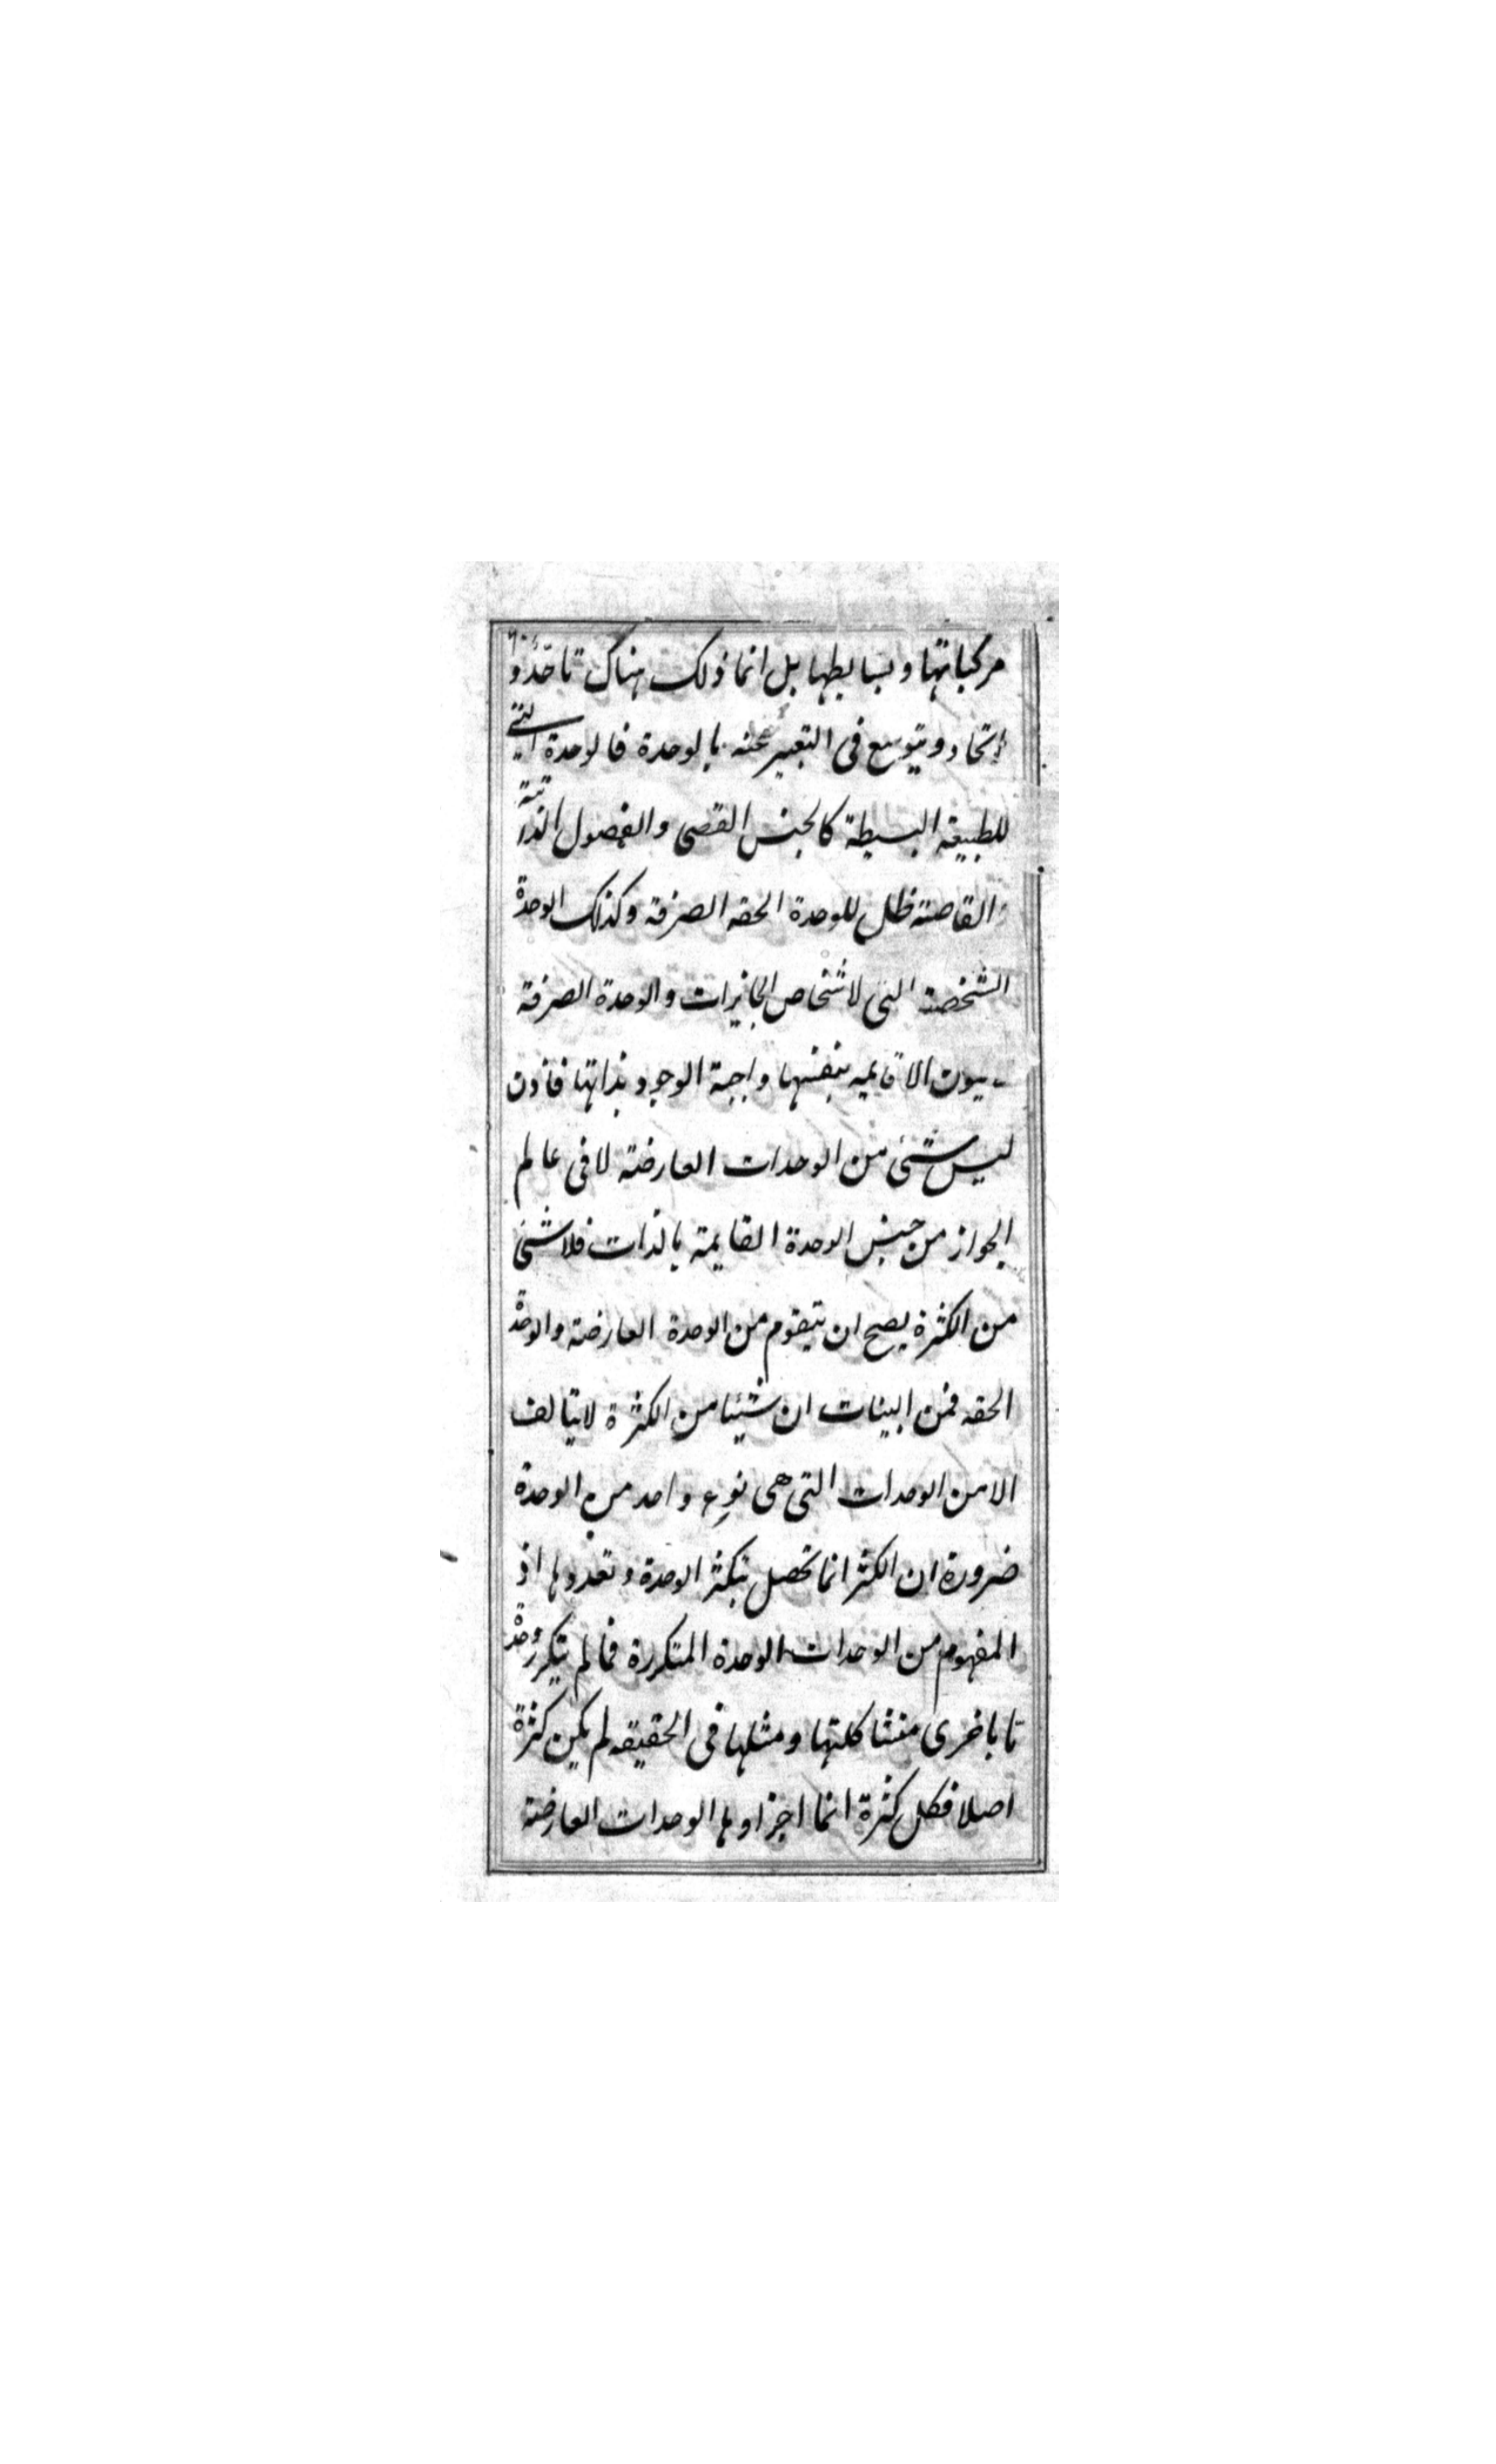 مركباتها وبسايطها بل انما ذلك هناك تاحد و
اتحاد ويتوسع فى التعبير عنه بالوحدة فالوحدة التى
للطبيعة البسيطة كالجنس القصى والفصول الذاتية
القاصية ظل للوحدة الحقه الصرفة وكذلك الوحدة
الشخصية التى لاشخاص الجايزات والوحدة الصرفة
القايمه بنفسها واجبة الوجود بذاتها فاذن
ليس شئ من الوحدات العارضة لا فى عالم
الجواز من جنس الوحدة القايمة بالذات فلا شئ
من الكثرة يصح ان يتقوم من الوحدة العارضة والوحدة
الحقه فمن البينات ان شيئا من الكثرة لا يتالف
الا من الوحدات التى هى نوع واحد من الوحدة
ضرورة ان الكثر انما تحصل بتكثر الوحدة وتعددها اذ
المفهوم من الوحدات الوحدة المتكررة فما لم يتكرر وحدة
ما باخرى مشاكلتها ومثلها فى الحقيقه لم يكن كثرة
اصلا فكل كثرة انما اجزاوها الوحدات العارضة